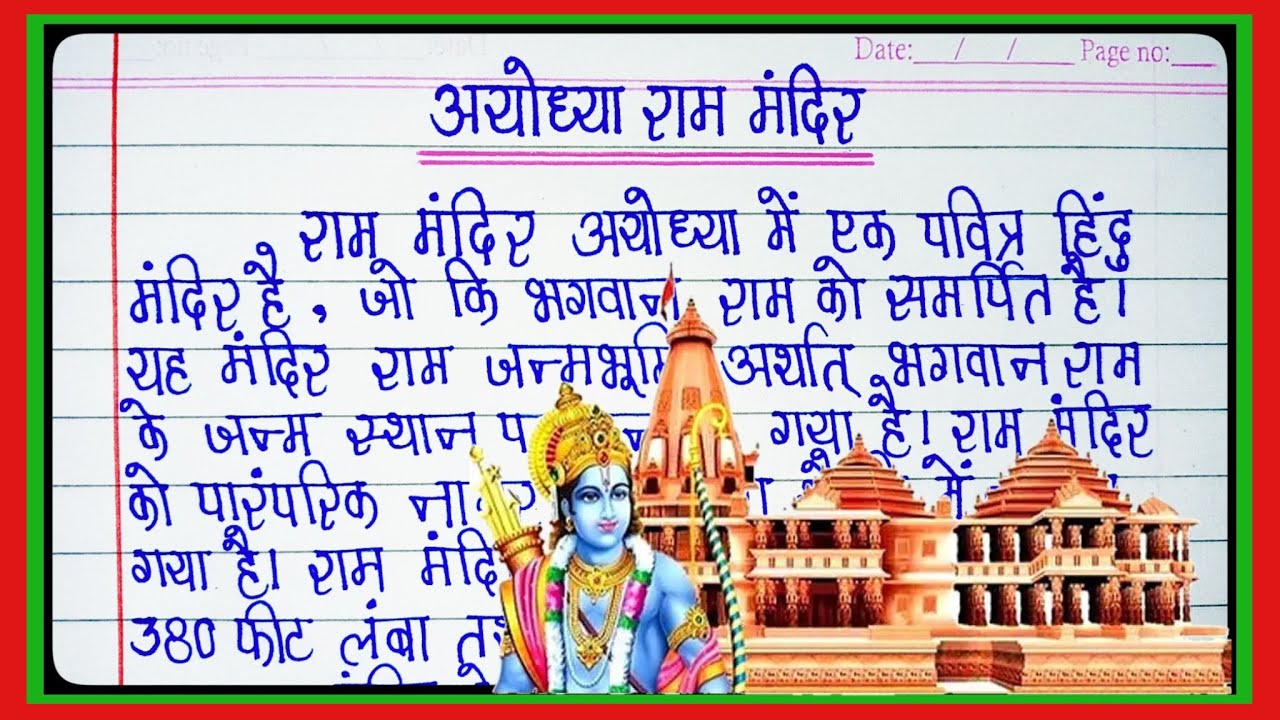 Date: / / Page no:
अयोध्या राम मंदिर
राम मंदिर अयोध्या में एक पवित्र हिंदु
मंदिर है, जो कि भगवान राम को समर्पित है।
यह मंदिर राम अर्थात् भगवान राम
के जन्म स्थान गया है। राम मंदिर
को पारंपरिक में
गया है। राम
380 फीट लंबा